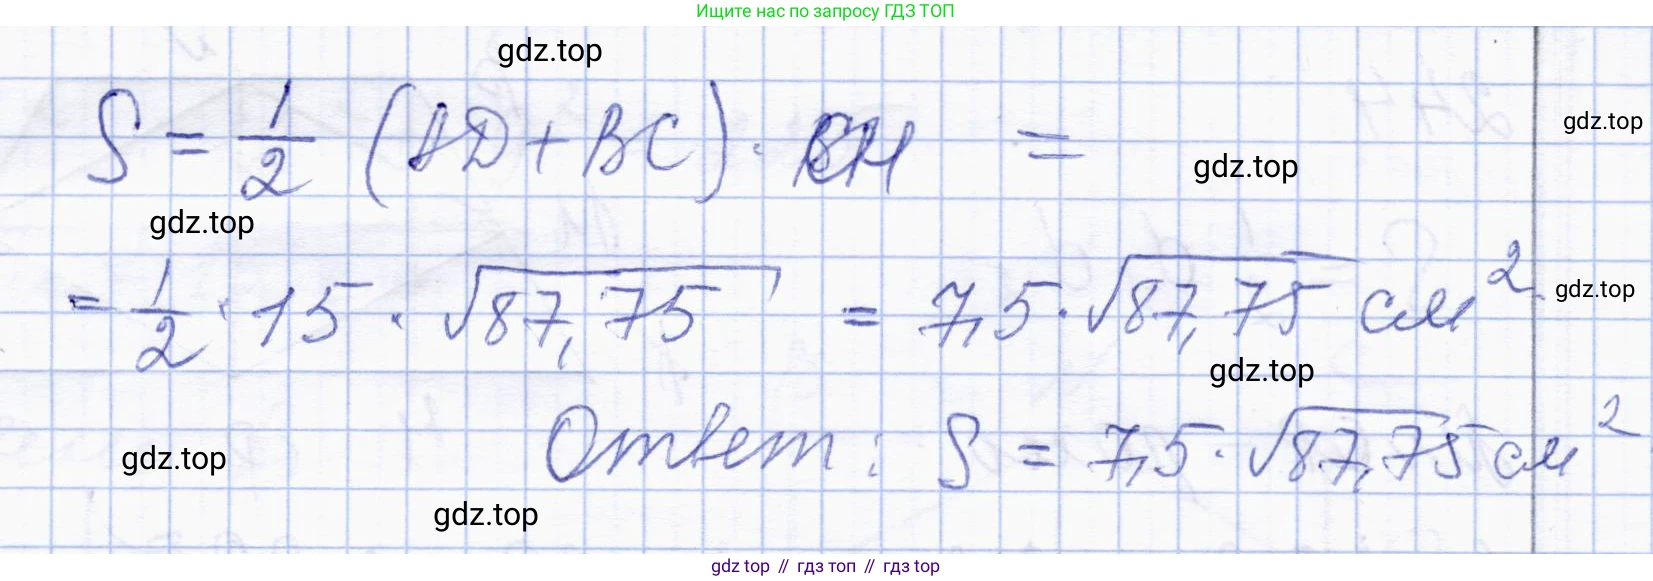 Ищите нас по запросу ГДЗ ТОП
gdz.top
S = 1/2 (AD + BC) · CH =
gdz.top
gdz.top
gdz.top
= 1/2 · 15 · √87,75 = 7,5 · √87,75 см²
gdz.top
gdz.top
Ответ: S = 7,5 · √87,75 см²
gdz.top
gdz.top
gdz top // гдз топ // gdz top